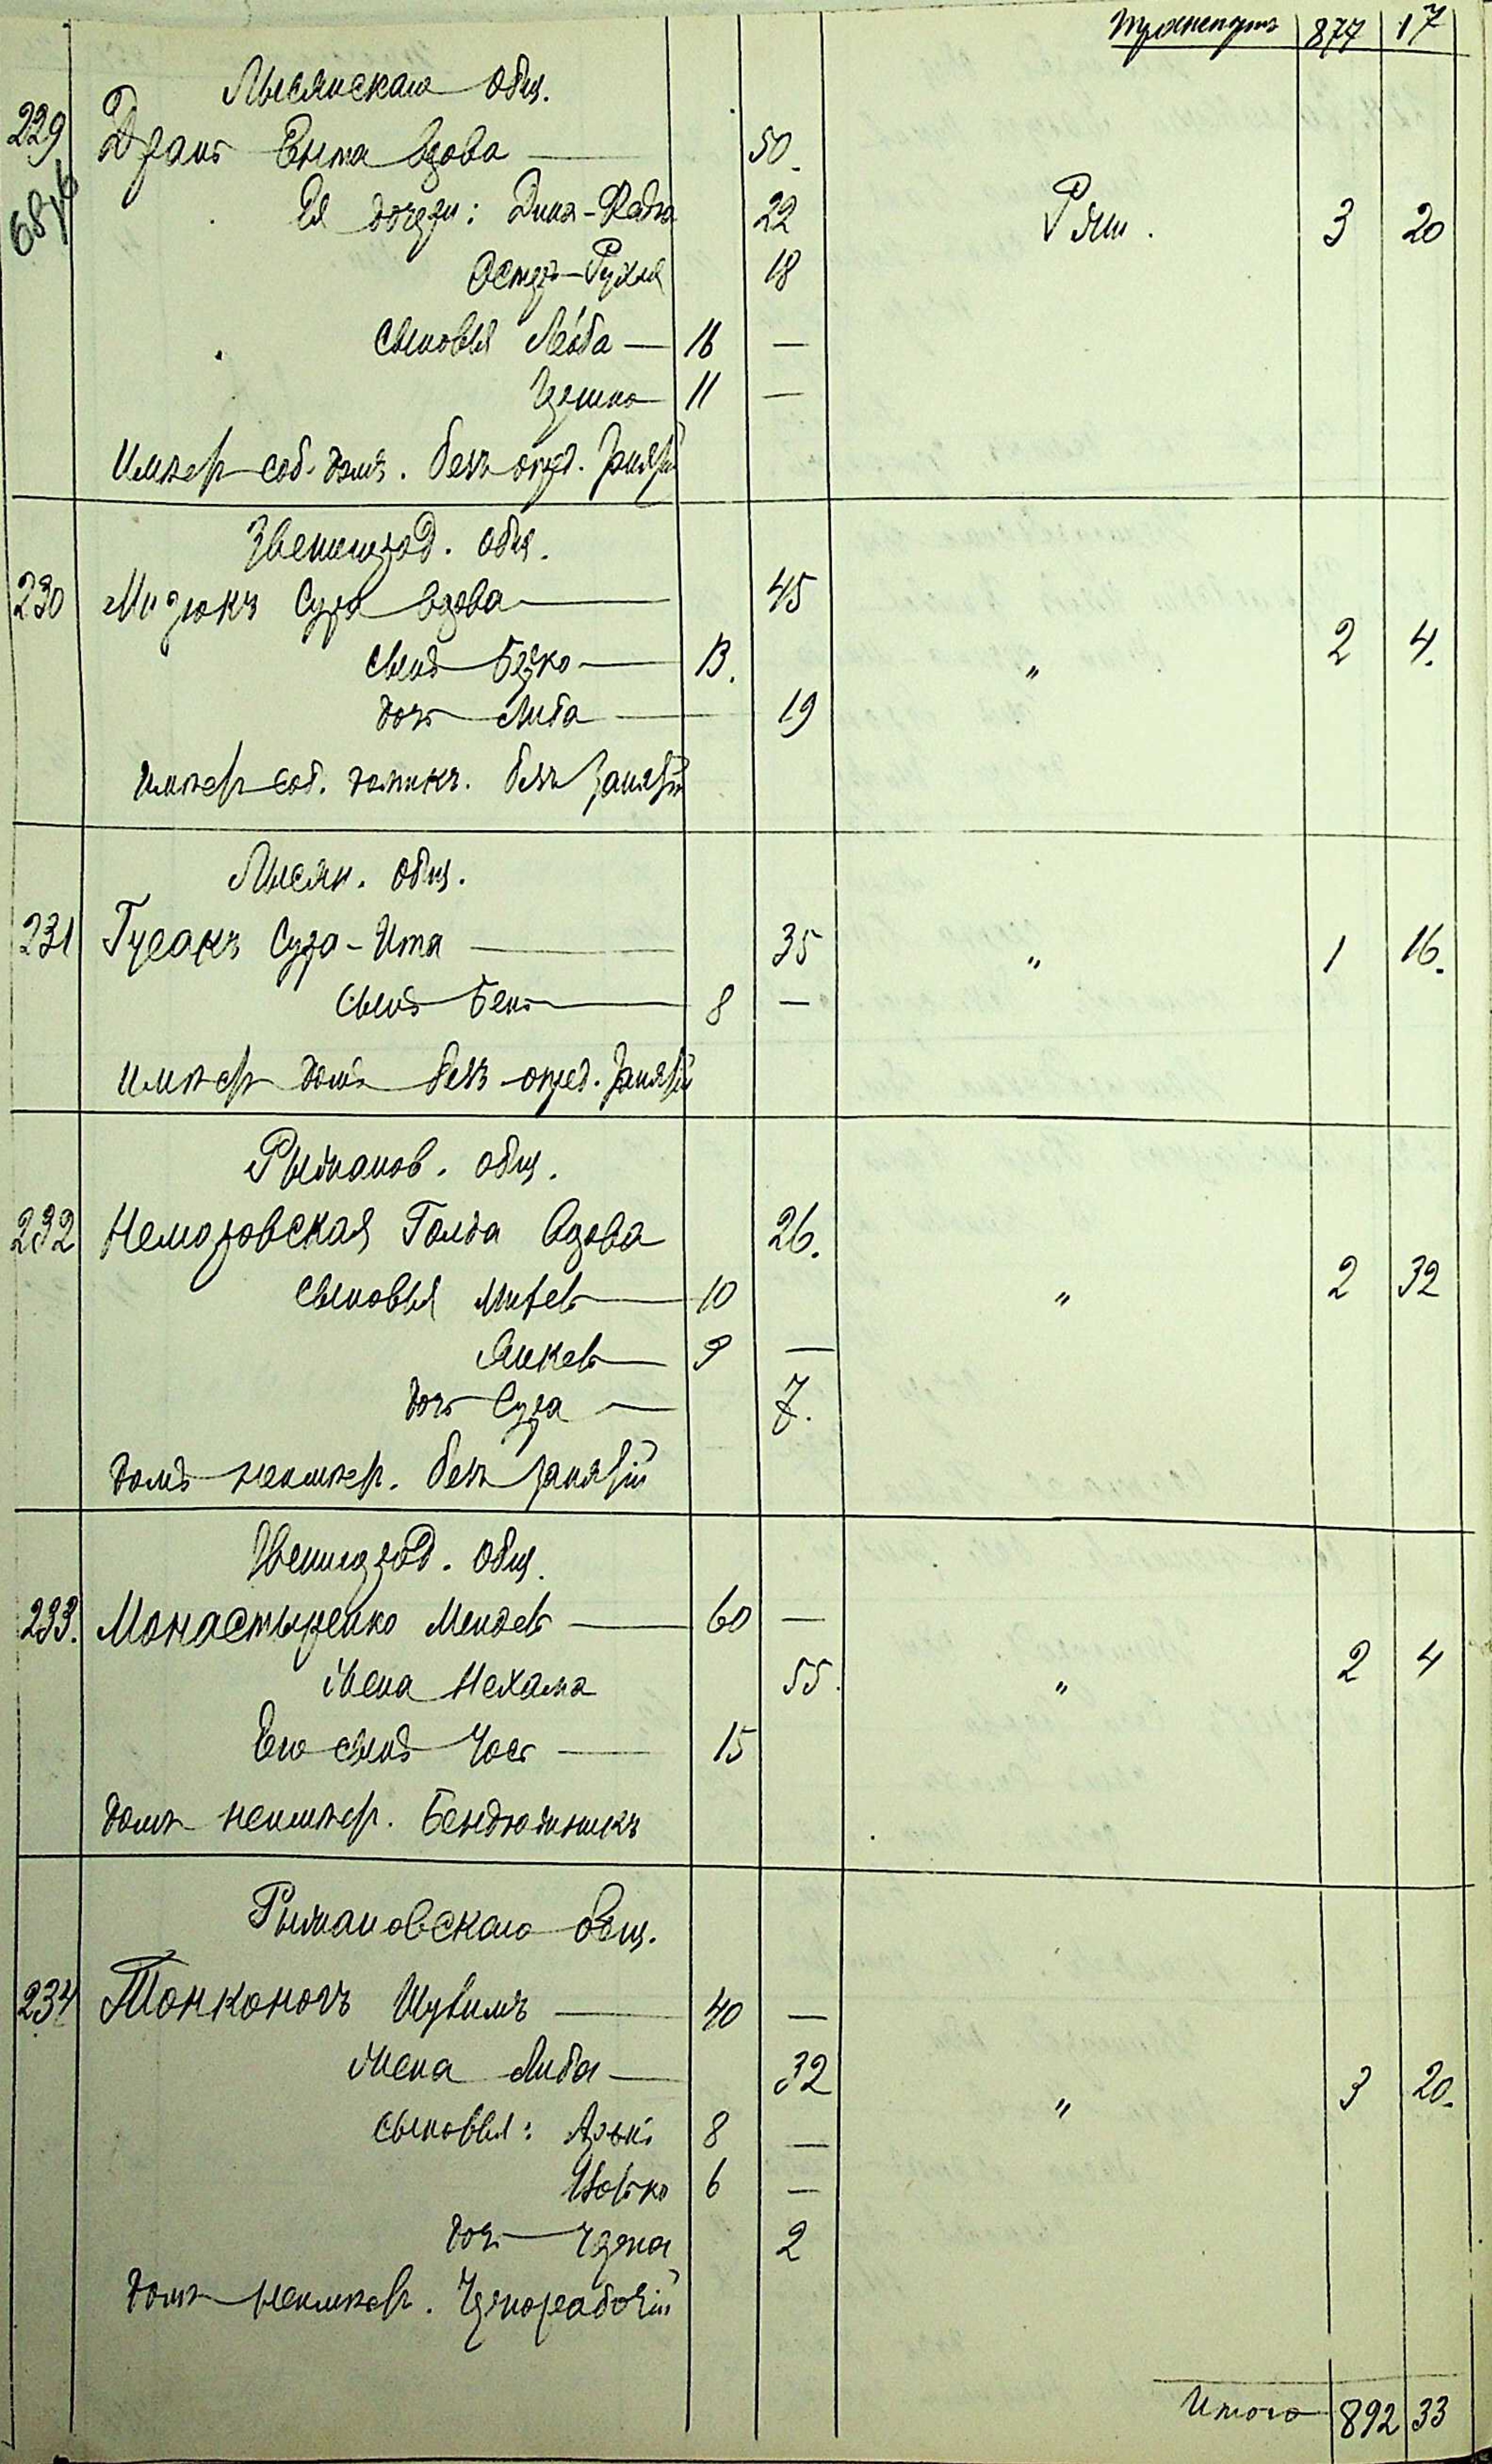 Транспортъ 877 17
Лысянскаго общ.
229 Дрань Ента вдова — 50.
Ея дочери: Дина-Фадя 22 Ряш. 3 20
Эстер-Рухля 18
сыновья Лейба — 16 —
Гершко 11 —
имѣет соб. домъ. безъ опред. занятій
Звенигород. общ.
230 Мизюкъ Сура вдова — 45
сынъ Берко — 13. " 2 4.
дочь Либа — 19
имѣет соб. домикъ. безъ занятій
Лысян. общ.
231 Гусакъ Сура-Ита — 35 " 1 16.
сынъ Бень — 8 —
имѣет домъ безъ опред. занятій
Рыжанов. общ.
232 Немировская Голда вдова 26.
сыновья — 10 " 2 32
Янкель — 9 —
дочь Сура — 7.
домъ неимѣет. безъ занятій
Звенигород. общ.
233. Монастыренко Мендель — 60 —
жена Нехама 55. " 2 4
Его сынъ Іось — 15
домъ неимѣет. Бендюжникъ
Рыжановскаго общ.
234 Тонконогъ — 40 —
жена Либа — 32 " 3 20.
сыновья: 8 —
6 —
дочь — 2
домъ неимѣет. Чернорабочій
Итого 892 33